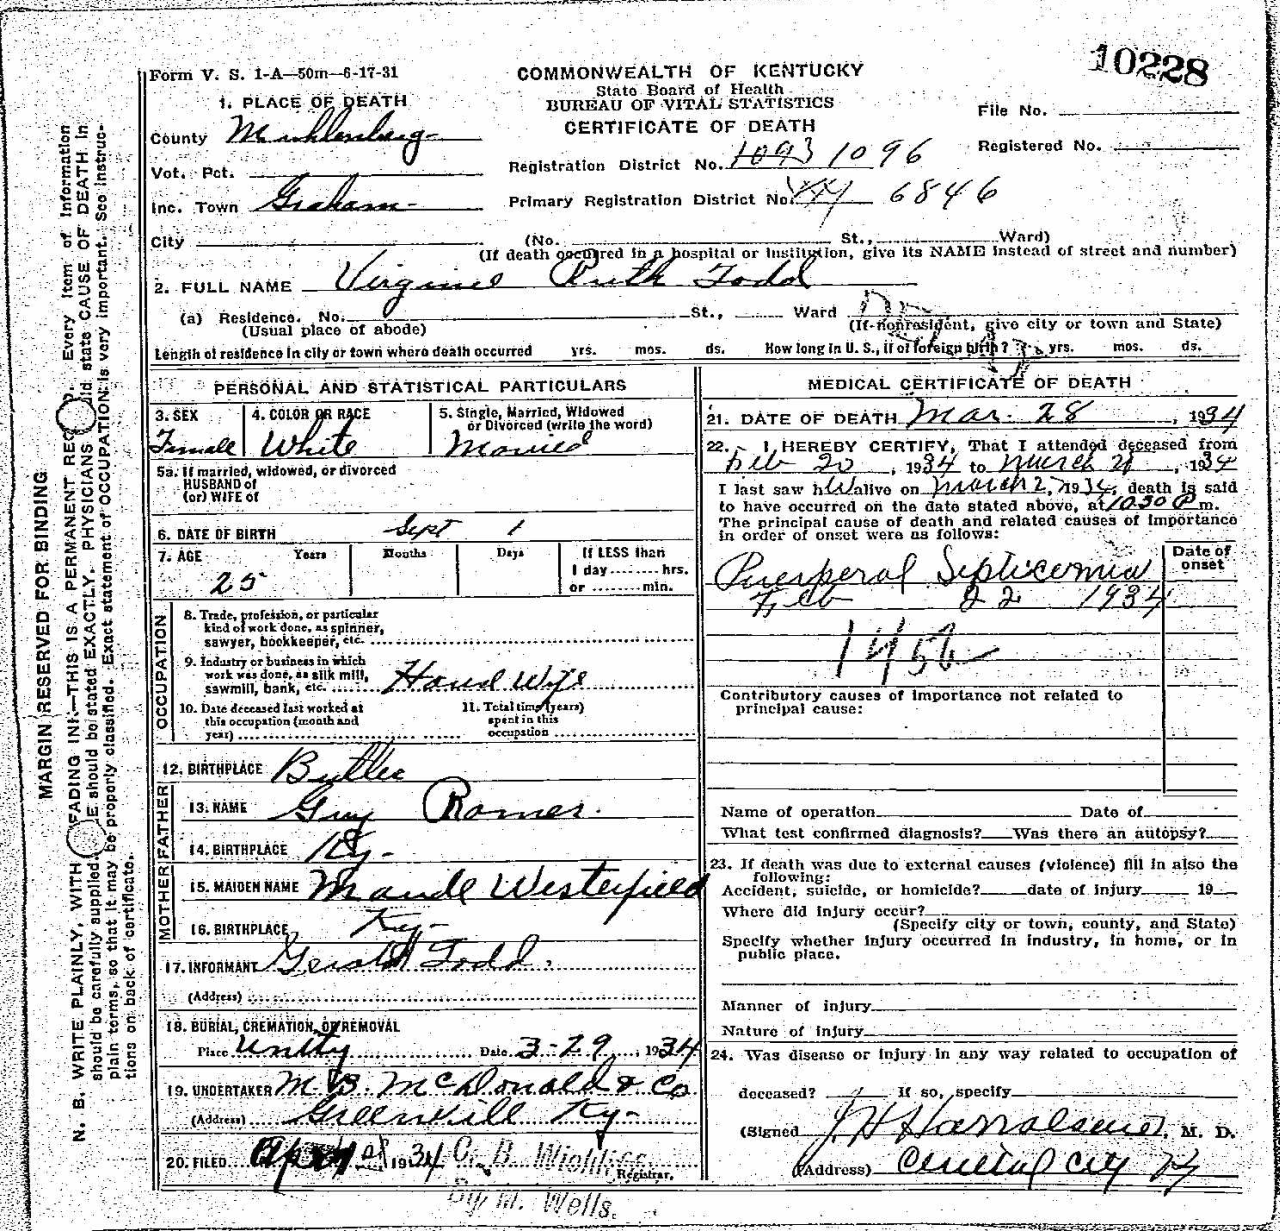 10228
Form V. S. 1-A—50m—6-17-31
COMMONWEALTH OF KENTUCKY
State Board of Health
BUREAU OF VITAL STATISTICS
CERTIFICATE OF DEATH
File No.
Registered No.
1. PLACE OF DEATH
County Muhlenberg
Vot. Pct.
Inc. Town Graham
City
Registration District No. 1093 1096
Primary Registration District No. 6846
(No. St., Ward)
(If death occurred in a hospital or institution, give its NAME instead of street and number)
2. FULL NAME Virginia Ruth Todd
(a) Residence. No. St., Ward
(Usual place of abode) (If nonresident, give city or town and State)
Length of residence in city or town where death occurred yrs. mos. ds. How long in U. S., if of foreign birth? yrs. mos. ds.
PERSONAL AND STATISTICAL PARTICULARS
3. SEX 4. COLOR OR RACE 5. Single, Married, Widowed
or Divorced (write the word)
Female White Married
5a. If married, widowed, or divorced
HUSBAND of
(or) WIFE of
6. DATE OF BIRTH Sept 1
7. AGE Years Months Days If LESS than
1 day hrs.
25 or min.
OCCUPATION
8. Trade, profession, or particular
kind of work done, as spinner,
sawyer, bookkeeper, etc.
9. Industry or business in which
work was done, as silk mill,
sawmill, bank, etc. House Wife
10. Date deceased last worked at
this occupation (month and
year)
11. Total time (years)
spent in this
occupation
12. BIRTHPLACE Butler
FATHER
13. NAME Guy Romer.
14. BIRTHPLACE Ky-
MOTHER
15. MAIDEN NAME Maude Westerfield
16. BIRTHPLACE Ky-
17. INFORMANT Gerald Todd.
(Address)
18. BURIAL, CREMATION, OR REMOVAL
Place Unity Date 3-29, 1934
19. UNDERTAKER M. B. McDonald & Co
(Address) Greenvill Ky-
20. FILED 1934 C. B. Wickliffe
Registrar.
By, M. Wells.
MEDICAL CERTIFICATE OF DEATH
21. DATE OF DEATH Mar. 28, 1934
22. I HEREBY CERTIFY, That I attended deceased from
Feb 20, 1934 to March, 1934
I last saw h alive on March 2, 1934, death is said
to have occurred on the date stated above, at 10:30 P m.
The principal cause of death and related causes of importance
in order of onset were as follows:
Date of
onset
Puerperal Septicemia
Feb 22 1934
145
Contributory causes of importance not related to
principal cause:
Name of operation Date of
What test confirmed diagnosis? Was there an autopsy?
23. If death was due to external causes (violence) fill in also the
following:
Accident, suicide, or homicide? date of injury 19
Where did injury occur?
(Specify city or town, county, and State)
Specify whether injury occurred in industry, in home, or in
public place.
Manner of injury
Nature of injury
24. Was disease or injury in any way related to occupation of
deceased? If so, specify
(Signed, M. D.
(Address) Central City Ky
MARGIN RESERVED FOR BINDING
N. B. WRITE PLAINLY, WITH FADING INK—THIS IS A PERMANENT Every item of information
should be carefully supplied. should be stated EXACTLY. PHYSICIANS state CAUSE OF DEATH in
plain terms, so that it may be properly classified. Exact statement of OCCUPATION is very important. See instruc-
tions on back of certificate.